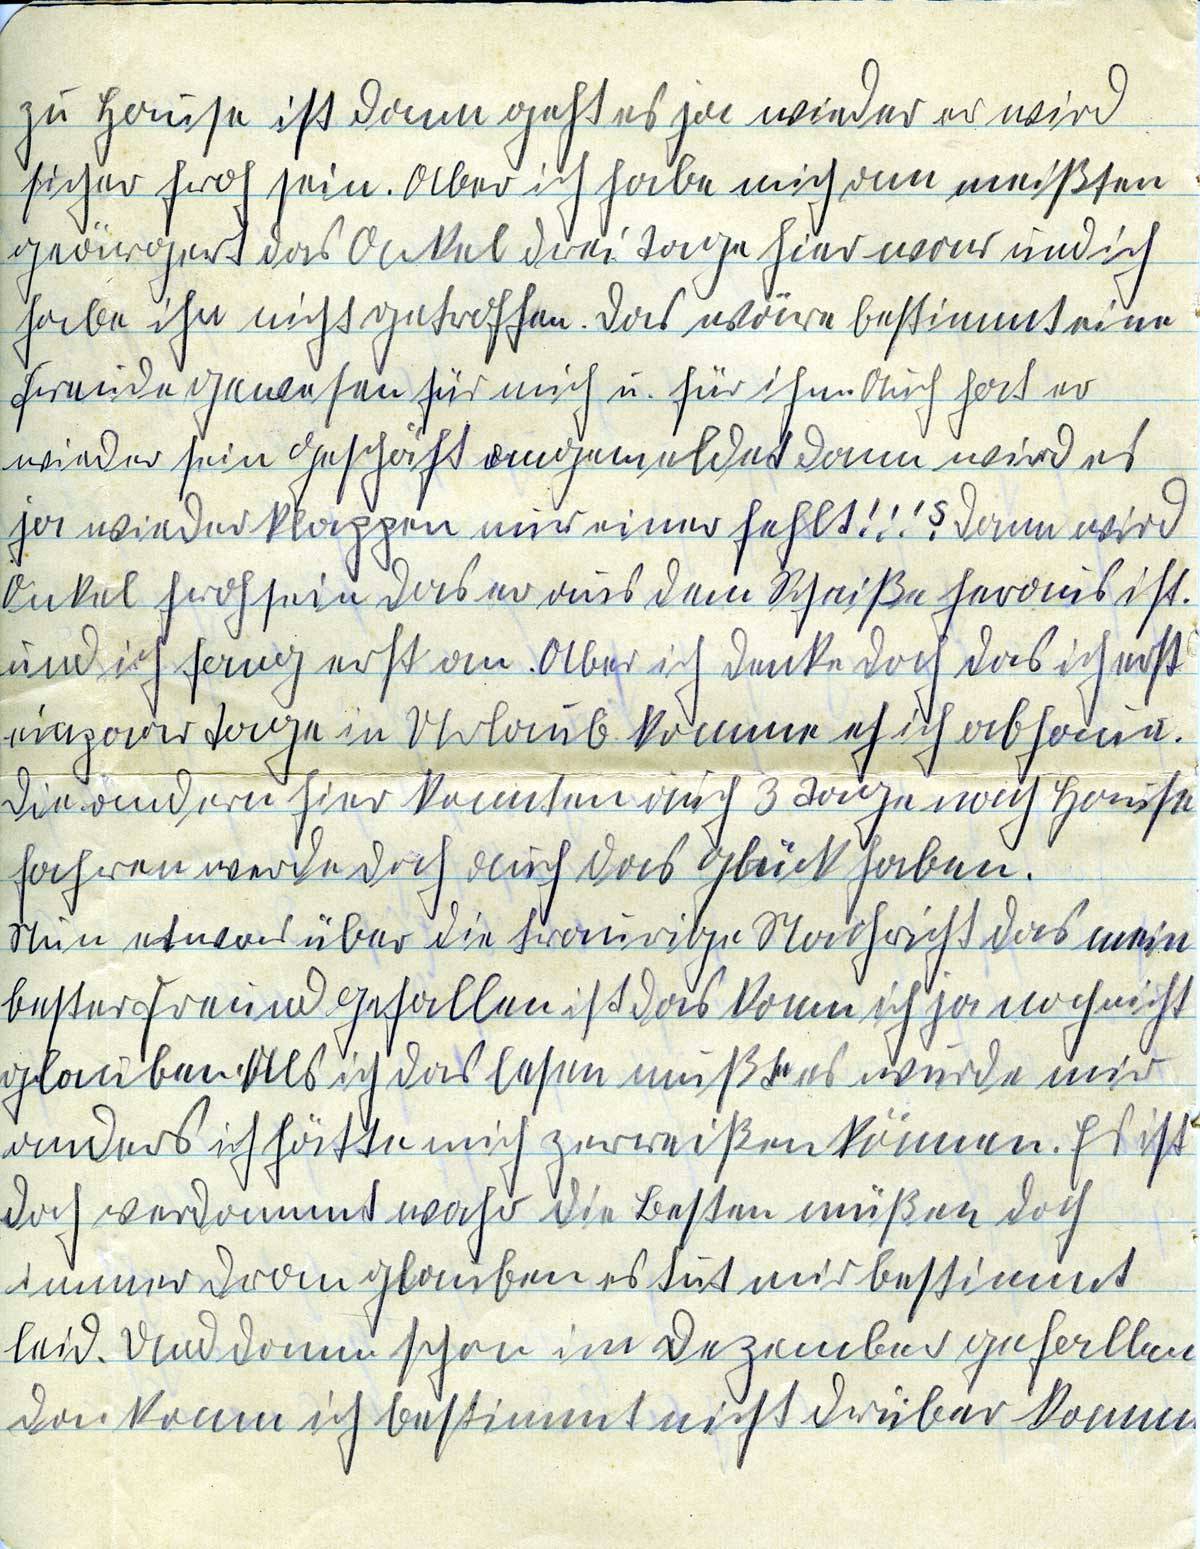 zu Hause ist dann geht es ja wieder er wird
sicher froh sein. Aber ich habe mich am meißten
geärgert das Onkel drei Tage hier war und ich
habe ihn nicht getroffen. Das wäre bestimmt eine
Freude gewesen für mich u. für ihn. Auch hat er
wieder sein Geschäft angemeldet dann wird es
ja wieder klappen nur einer fehlt!!!? Dann wird
Onkel froh sein das er aus dem Scheiße heraus ist.
und ich fang erst an. Aber ich denke doch das ich erst
ein paar Tage in Urlaub komme eh ich abhaue.
Die andern hier konnten auch 3 Tage nach Hause
fahren werde doch auch das Glück haben.
Nun etwas über die traurige Nachricht das mein
bester Freund gefallen ist das kann ich ja noch nicht
glauben. Als ich das lesen mußte es wurde mir
anders ich hätte mich zerreißen können. Es ist
doch verdammt wahr die Besten müßen doch
immer dran glauben es tut mir bestimmt
leid. Und dann schon im Dezember gefallen
da kann ich bestimmt nicht drüber komm